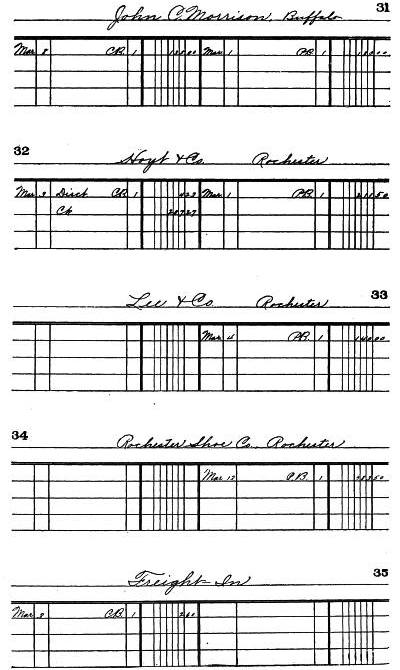 31
John C. Morrison, Buffalo
Mar 8 CB. 1 Mar 1 PB. 1
32
Hoyt & Co. Rochester
Mar 9 Disct CB. 1 423 Mar 1 PB. 1 21150
Ck 20727
33
Lee & Co. Rochester
Mar 4 PB. 1 14000
34
Rochester Shoe Co., Rochester
Mar 12 P.B. 1
35
Freight In
Mar 9 CB. 1